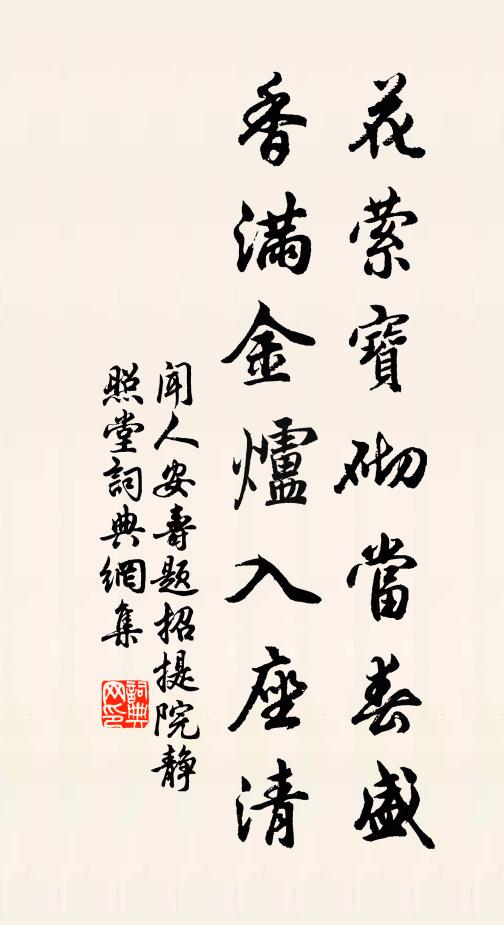 花萦寶砌當春盛
香滿金爐入座清
闻人安壽題招提院静
照堂詞典網集
詞典网印